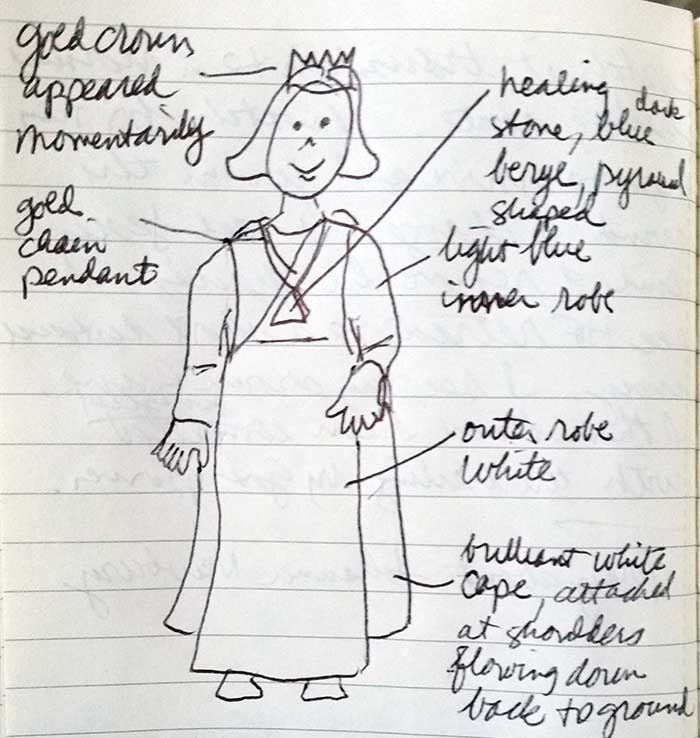 gold crown
appeared
momentarily
gold
chain
pendant
healing
stone, dark blue
beryl, pyramid
shaped
light blue
inner robe
outer robe
white
brilliant white
cape, attached
at shoulders
flowing down
back to ground